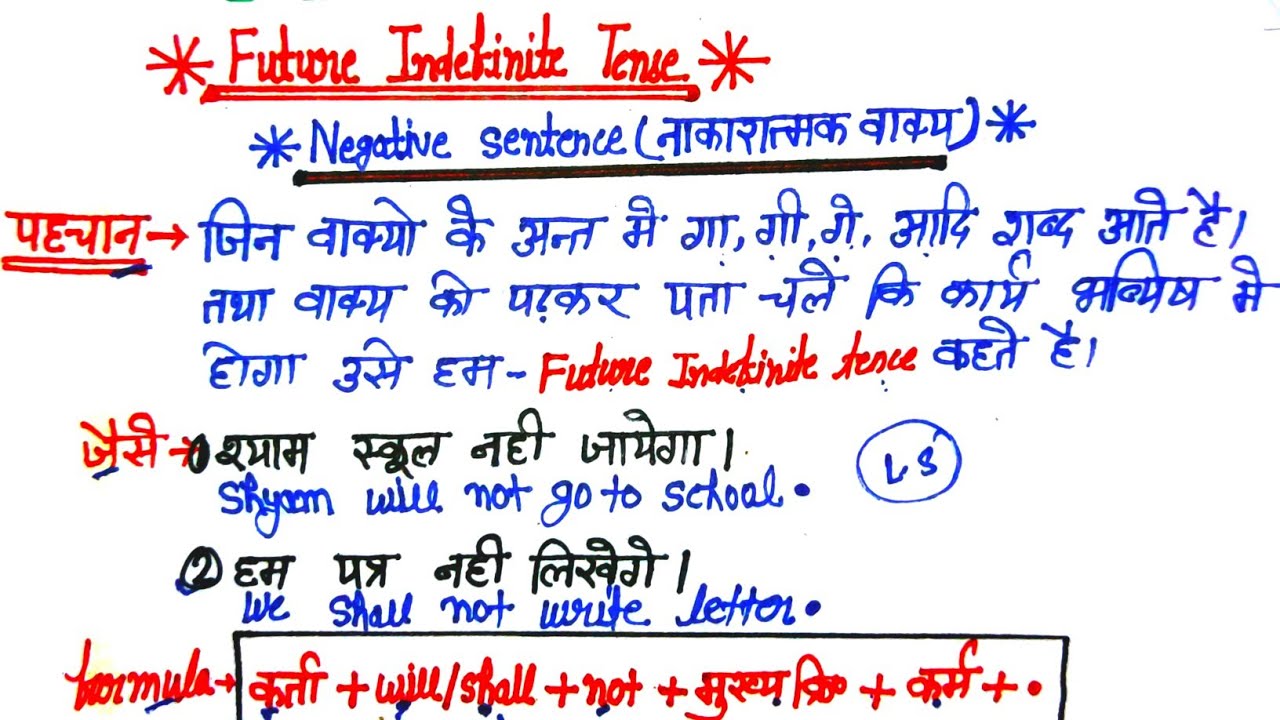 * Future Indefinite Tense *
* Negative sentence (नाकारात्मक वाक्य) *
पहचान → जिन वाक्यो के अन्त मे गा, गी, गे, आदि शब्द आते है।
तथा वाक्य को पढ़कर पता चलें कि कार्य भव्यिष मे
होगा उसे हम - Future Indefinite tence कहते है।
जैसे → ① श्याम स्कूल नही जायेगा।
Shyam will not go to school.
L S
② हम पत्र नही लिखेगे।
We shall not write letter.
formula → कर्ता + will/shall + not + मुख्य क्रि० + कर्म + .